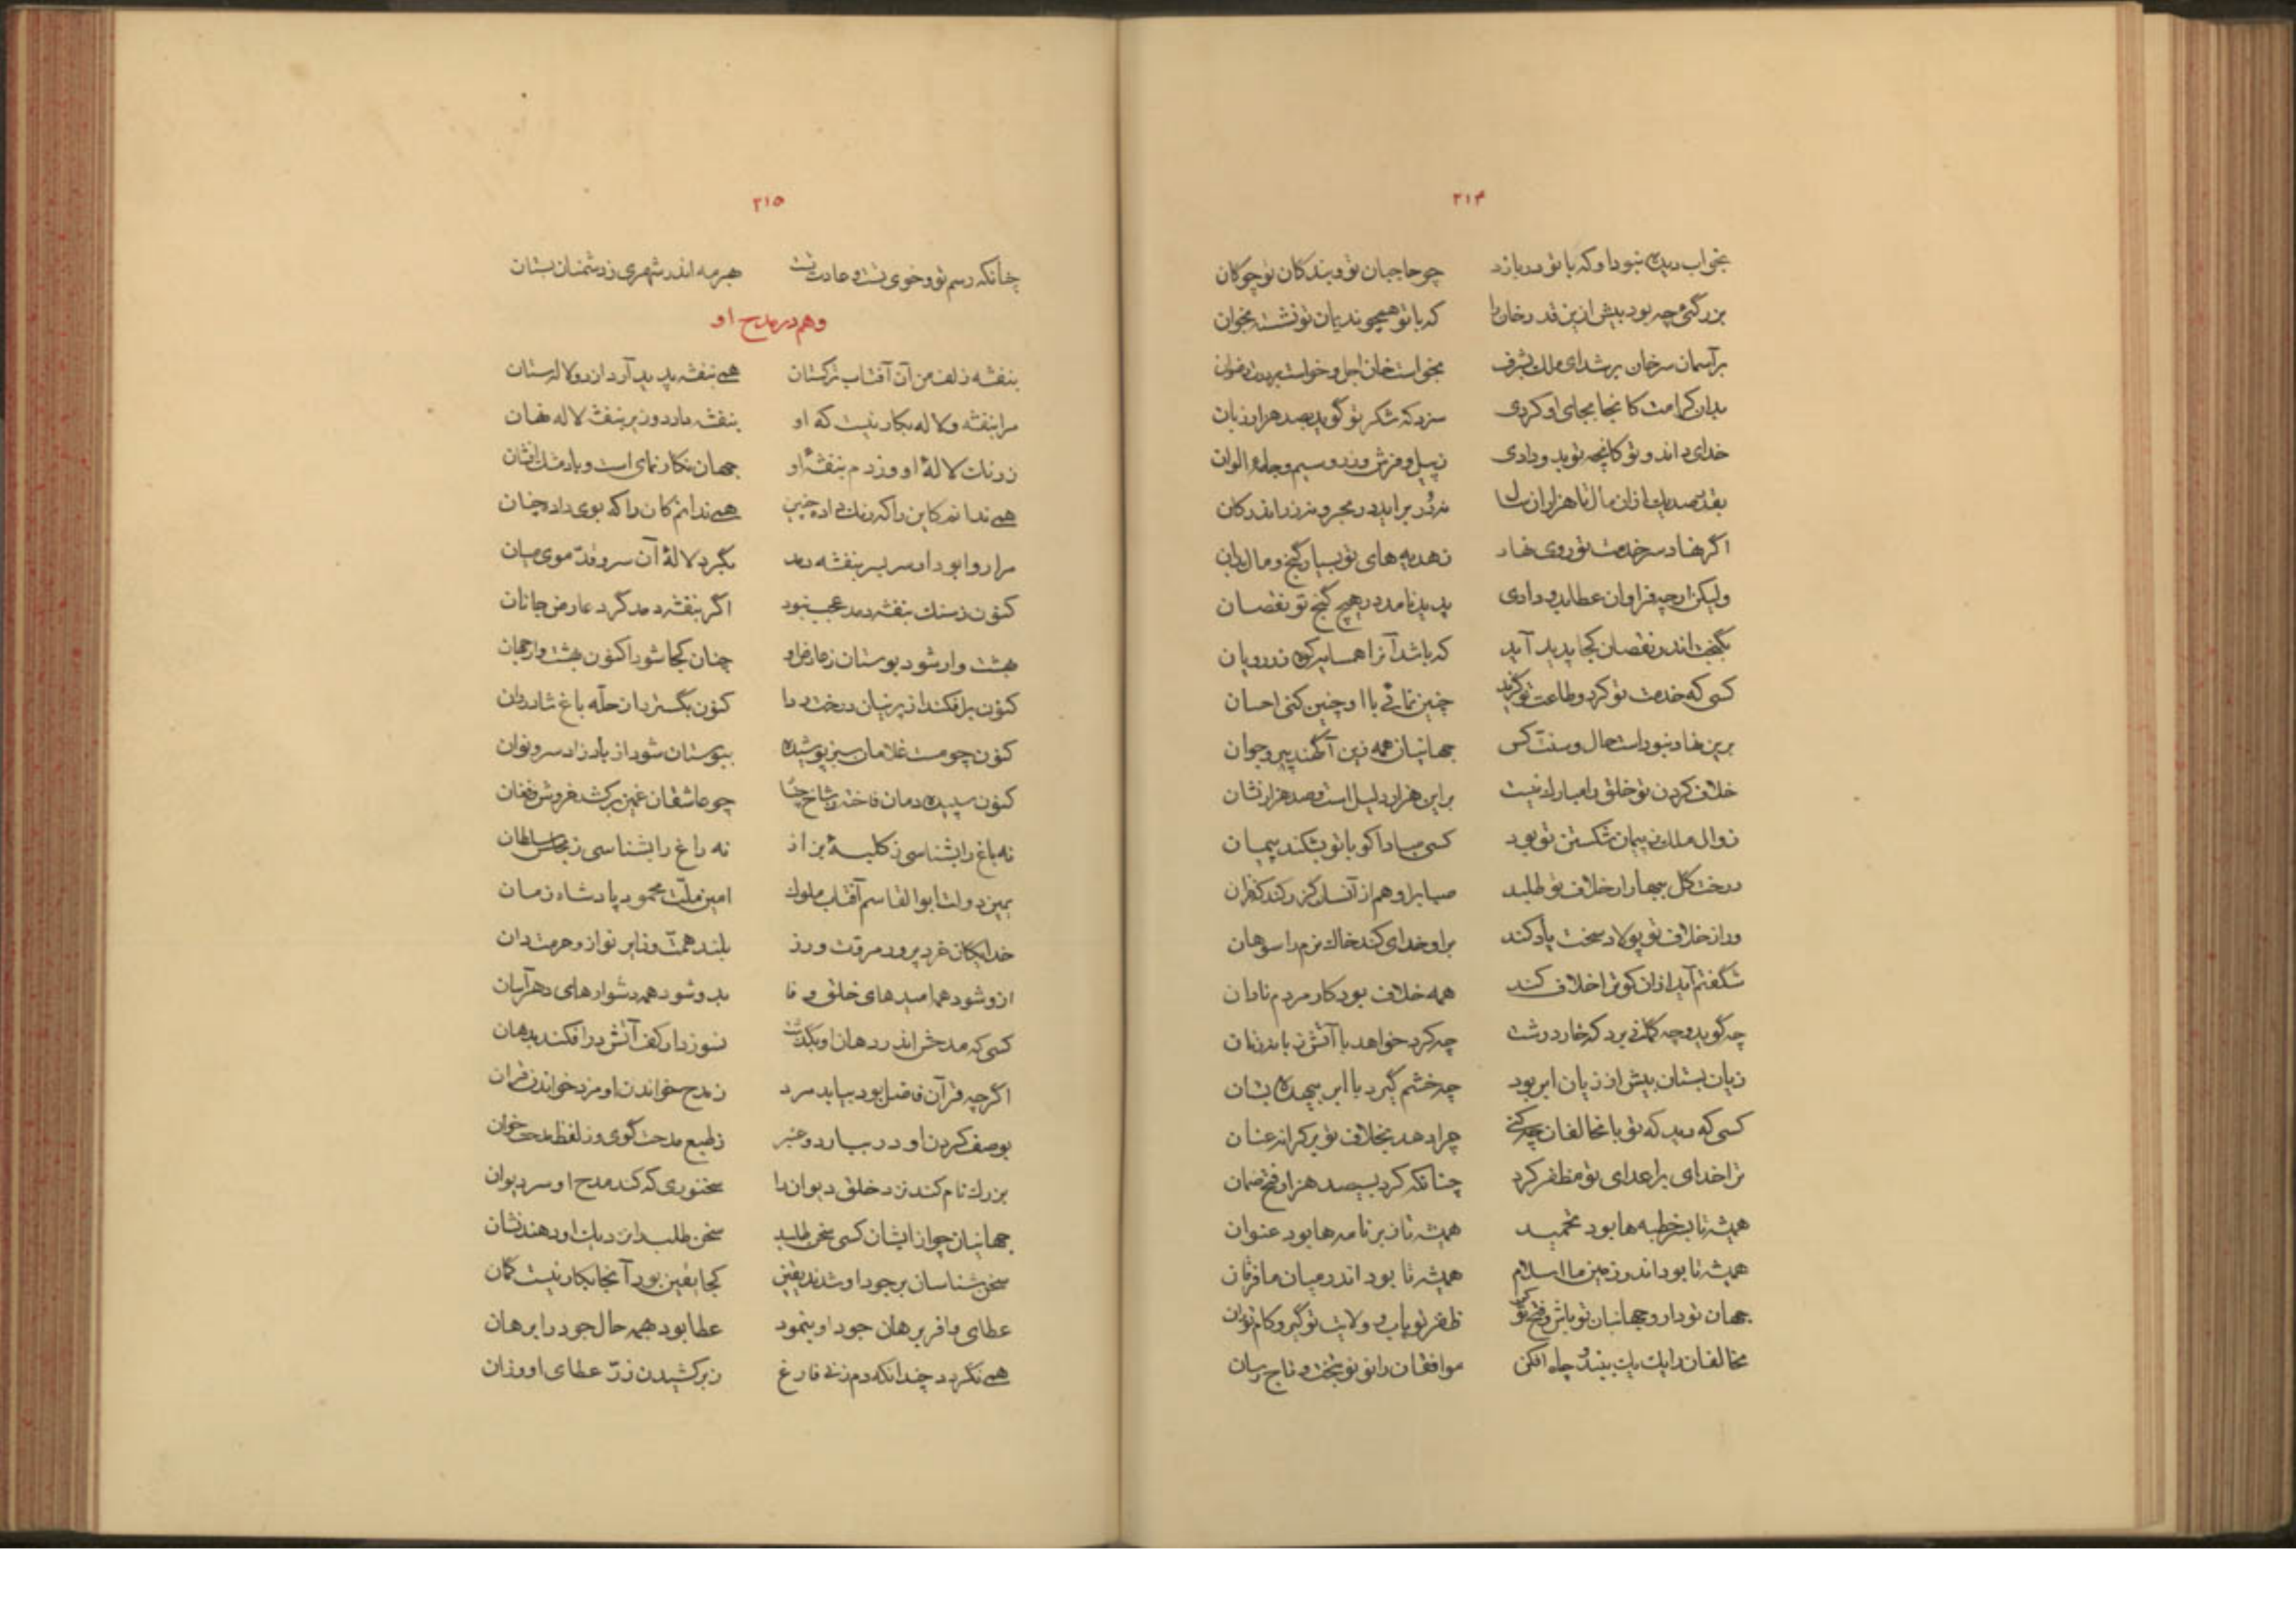 ۲۱۴
بخواب دیده نبود او که با تو در بازد چو حاجبان تو و بندگان تو چوکان
بزرگئ چه بود بیش ازین قدرخان را که با تو همچو ندیمان تو نشست بخوان
بر آسمان سر خان بر شد ای ملک بشرف بخواست خان اجل و خواست
بدان کرامت کانجا بجای او کردی سزد که شکر تو گوید بصد هزار زبان
خدای داند و تو کانچه توبدو دادی ز پیل و فرش و زر و سیم و جامه الوان
بقدر صدیک ازان مال تا هزاران سال نه زر بر اید در بحر و نه زر اندر کان
اگر نهاد سر خدمت تو روی نهاد ز هدیه های تو بسیار گنج و مال بدان
ولیکن ارچه فراوان عطا بدو دادی پدید نامد در هیچ گنج تو نقصان
بگنجت اندر نقصان کجا پدید آید که باشد آنرا همسایه کوه زر رویان
کسی که خدمت تو کرد و طاعت تو گزید چنین نمائی با او چنین کنی احسان
برین نهاد نبود است حال و سنت کس جهانیان همه زین آگهند پیر و جوان
خلاف کردن تو خلق را مبارک نیست براین هزار دلیل است و صد هزار نشان
زوال ملک ز پیمان شکستن تو بود کسی مبادا کو با تو بشکند پیمان
درخت گل ببهار ار خلاف تو طلبد صبا برو هم از آنسان گزر کند که خزان
ور از خلاف تو پولاد سخت یاد کند برو خدای کند خاک نرم را سوهان
شگفتم آید ازان کو ترا خلاف کند همه خلاف بود کار مردم نادان
چه گوید و چه گمانی برد که خار درشت چه کرد خواهد با آتش زبانه زنان
زیان بستان بیش از زیان ابر بود چه خشم گیرد با ابر بیهده بستان
کسی که دید که تو با مخالفان چه کنی چرا دهد بخلاف تو بر کرانه عنان
ترا خدای بر اعدای تو مظفر کرد چنانکه کرد بسیصد هزار فتح ضمان
همیشه تا بسر خطبه ها بود تحمید همیشه تا ز بر نامه ها بود عنوان
همیشه تا بود اندر زمین ما اسلام همیشه تا بود اندر میان ما فرقان
جهان تو دار و جهانبان تو باش و فتح تو کن ظفر تو یاب و ولایت تو گیر و کام توران
مخالفان را یک یک ببند و چاه افکن موافقان را نو نو بتخت و تاج رسان
۲۱۵
چنانکه رسم تو و خوی تست و عادت تست هر مه اندر شهری ز دشمنان بستان
و هم در مدح او
بنفشه زلف من آن آفتاب ترکستان همی بنفشه پدید آرد از دو لالستان
مرا بنفشه و لاله بکار نیست که او بنفشه دارد و زیر بنفشه لاله نهان
ز رنگ لالهٔ او وز دم بنفشهٔ او جهان نگار نمای است و باد مشک افشان
همی ندانم کاین را که رنگ داد چنین همی ندانم کان را که بوی داد چنان
مرا روا بود ار سر بسر بنفشه دمد بگرد لالهٔ آن سرو قدّ موی میان
کنون ز سنگ بنفشه دمد عجب نبود اگر بنفشه دمد گرد عارض جانان
بهشت وار شود بوستان ز عارض او چنان کجا شود اکنون بهشت وار جهان
کنون بر افکند از پرنیان درخت ردا کنون بگسترد از حلّه باغ شادروان
کنون چو مست غلامان سبز پوشیده ببوستان شود از باد زاد سرو نوان
کنون سپیده دمان فاخته ز شاخ چنار چو عاشقان غمین بر کشد خروش و فغان
نه باغ را بشناسی ز کلبهٔ بزاز نه راغ را بشناسی ز مجلس سلطان
یمین دولت ابوالقاسم آفتاب ملوک امین ملّت محمود پادشاه زمان
خدایگان خرد پرور مروّت ورز بلند همّت و زایر نواز و حرمت دان
ازو شود همه امیدهای خلق وفا بدو شود همه دشوارهای دهر آسان
کسی که مدحش اندر دهان او بگذشت نسوزد ار کف آتش در افکند بدهان
اگر چه قرآن فاضل بود بیابد مرد ز مدح خواندن او مزد خواندن قرآن
بوصف کردن او در ببارد و عنبر ز طبع مدحت گوی و ز لفظ مدحت خوان
بزرگ نام کند نزد خلق دیوان را سخنوری که کند مدح او سر دیوان
جهانیان چو از ایشان کسی سخن طلبد سخن طلب را نزدیک او دهند نشان
سخن شناسان بر جود او شدند یقین کجا یقین بود آنجا بکار نیست گمان
عطای وافر برهان جود او بنمود عطا بود بهمه حال جود را برهان
همی نگردد چندانکه دم زنی فارغ ز بر کشیدن زرّ عطای او وزان